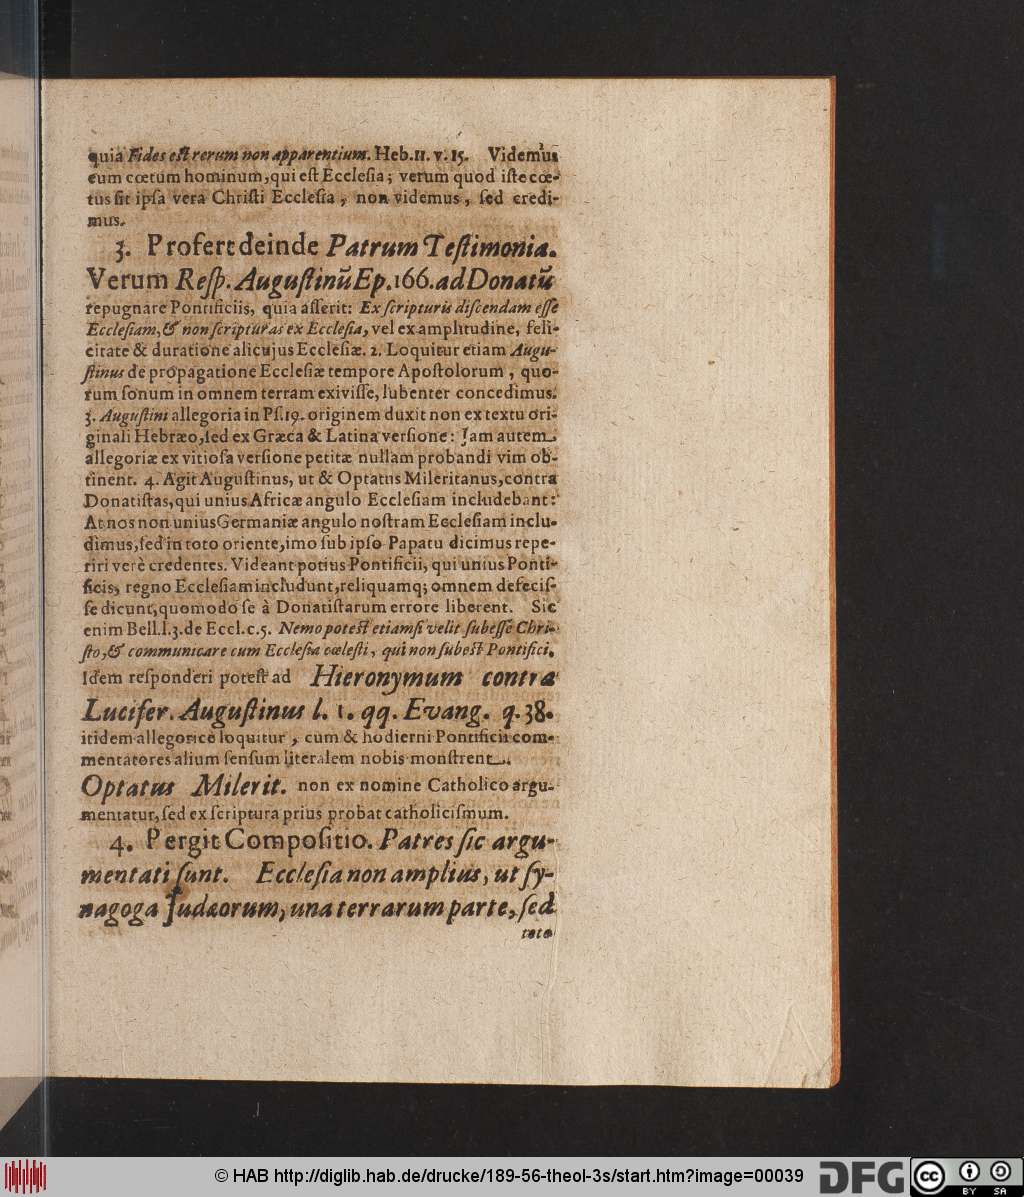 quia Fides est rerum non apparentium. Heb. 11. v. 15. Videmus
eum cœtum hominum, qui est Ecclesia; verum quod iste cœ-
tus sit ipsa vera Christi Ecclesia, non videmus, sed credi-
mus.
3. Profert deinde Patrum Testimonia.
Verum Resp. Augustinũ Ep. 166. ad Donatũ
repugnare Pontificiis, quia asserit: Ex scripturis discendam esse
Ecclesiam, & non scripturas ex Ecclesia, vel ex amplitudine, feli-
citate & duratione alicujus Ecclesiæ. 2. Loquitur etiam Augu-
stinus de propagatione Ecclesiæ tempore Apostolorum, quo-
rum sonum in omnem terram exivisse, lubenter concedimus.
3. Augustini allegoria in Ps. 19. originem duxit non ex textu ori-
ginali Hebræo, sed ex Græca & Latina versione: Jam autem
allegoriæ ex vitiosa versione petitæ nullam probandi vim ob-
tinent. 4. Agit Augustinus, ut & Optatus Mileritanus, contra
Donatistas, qui unius Africæ angulo Ecclesiam includebant:
At nos non unius Germaniæ angulo nostram Ecclesiam inclu-
dimus, sed in toto oriente, imo sub ipso Papatu dicimus repe-
riri verè credentes. Videant potius Pontificii, qui unius Ponti-
ficis, regno Ecclesiam includunt, reliquamq; omnem defecis-
se dicunt, quomodo se à Donatistarum errore liberent. Sic
enim Bell. l. 3. de Eccl. c. 5. Nemo potest etiamsi velit subesse Chri-
sto, & communicare cum Ecclesia cœlesti, qui non subest Pontifici.
Idem responderi potest ad Hieronymum contra
Lucifer. Augustinus l. 1. qq. Evang. q. 38.
itidem allegoricè loquitur, cum & hodierni Pontificii com-
mentatores alium sensum literalem nobis monstrent.
Optatus Milerit. non ex nomine Catholico argu-
mentatur, sed ex scriptura prius probat catholicismum.
4. Pergit Compositio. Patres sic argu-
mentati sunt. Ecclesia non amplius, ut sy-
nagoga Judæorum, una terrarum parte, sed
toto
© HAB http://diglib.hab.de/drucke/189-56-theol-3s/start.htm?image=00039
DFG
cc
BY SA